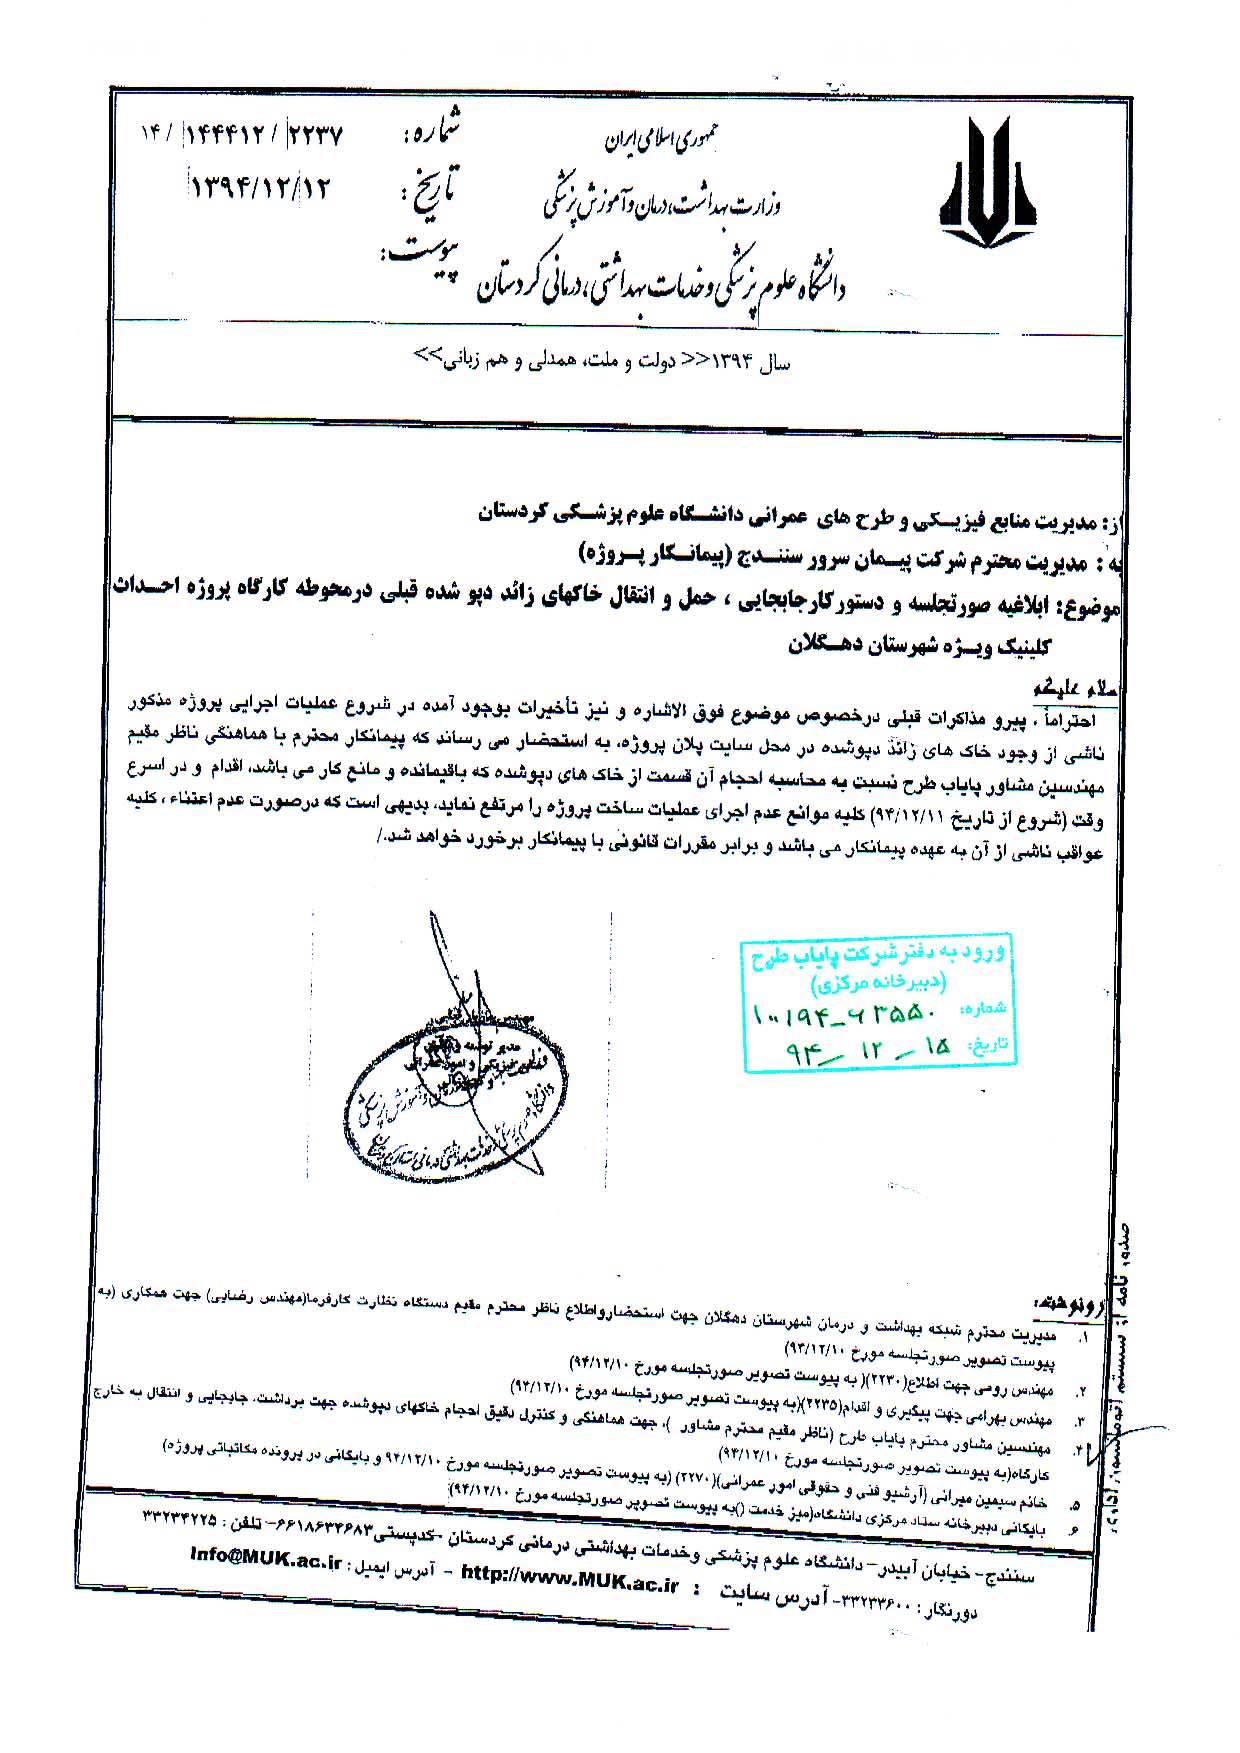 جمهوری اسلامی ایران
وزارت بهداشت، درمان و آموزش پزشکی
دانشگاه علوم پزشکی و خدمات بهداشتی، درمانی کردستان
شماره: ۱۴/ ۱۴۴۴۱۲/ ۲۲۳۷
تاریخ: ۱۳۹۴/۱۲/۱۲
پیوست:
سال ۱۳۹۴<< دولت و ملت، همدلی و هم زبانی>>
از: مدیریت منابع فیزیکی و طرح های عمرانی دانشگاه علوم پزشکی کردستان
به : مدیریت محترم شرکت پیمان سرور سنندج (پیمانکار پروژه)
موضوع: ابلاغیه صورتجلسه و دستورکارجابجایی ، حمل و انتقال خاکهای زائد دپو شده قبلی درمحوطه کارگاه پروژه احداث
کلینیک ویژه شهرستان دهگلان
سلام علیکم
احتراماً ، پیرو مذاکرات قبلی درخصوص موضوع فوق الاشاره و نیز تأخیرات بوجود آمده در شروع عملیات اجرایی پروژه مذکور
ناشی از وجود خاک های زائد دپوشده در محل سایت پلان پروژه، به استحضار می رساند که پیمانکار محترم با هماهنگی ناظر مقیم
مهندسین مشاور پایاب طرح نسبت به محاسبه احجام آن قسمت از خاک های دپوشده که باقیمانده و مانع کار می باشد، اقدام و در اسرع
وقت (شروع از تاریخ ۹۴/۱۲/۱۱) کلیه موانع عدم اجرای عملیات ساخت پروژه را مرتفع نماید، بدیهی است که درصورت عدم اعتناء ، کلیه
عواقب ناشی از آن به عهده پیمانکار می باشد و برابر مقررات قانونی با پیمانکار برخورد خواهد شد./
ورود به دفتر شرکت پایاب طرح
(دبیرخانه مرکزی)
شماره: ۱۰۰۱۹۴-۶۳۵۵۰
تاریخ: ۹۴-۱۲-۱۵
رونوشت:
۱. مدیریت محترم شبکه بهداشت و درمان شهرستان دهگلان جهت استحضارواطلاع ناظر محترم مقیم دستگاه نظارت کارفرما(مهندس رضایی) جهت همکاری (به
پیوست تصویر صورتجلسه مورخ ۹۴/۱۲/۱۰)
۲. مهندس رومی جهت اطلاع(۲۲۳۰)( به پیوست تصویر صورتجلسه مورخ ۹۴/۱۲/۱۰)
۳. مهندس بهرامی جهت پیگیری و اقدام(۲۲۳۵)(به پیوست تصویر صورتجلسه مورخ ۹۴/۱۲/۱۰)
۴. مهندسین مشاور محترم پایاب طرح (ناظر مقیم محترم مشاور )، جهت هماهنگی و کنترل دقیق احجام خاکهای دپوشده جهت برداشت، جابجایی و انتقال به خارج
کارگاه(به پیوست تصویر صورتجلسه مورخ ۹۴/۱۲/۱۰)
۵. خانم سیمین میرانی (آرشیو فنی و حقوقی امور عمرانی)(۲۲۷۰) (به پیوست تصویر صورتجلسه مورخ ۹۴/۱۲/۱۰ و بایگانی در پرونده مکاتباتی پروژه)
۶. بایگانی دبیرخانه ستاد مرکزی دانشگاه(میز خدمت ()به پیوست تصویر صورتجلسه مورخ ۹۴/۱۲/۱۰)
سنندج- خیابان آبیدر- دانشگاه علوم پزشکی وخدمات بهداشتی درمانی کردستان -کدپستی۶۶۱۸۶۳۴۶۸۳- تلفن : ۳۳۲۳۴۲۲۵
دورنگار : ۳۳۲۳۳۶۰۰- آدرس سایت : http://www.MUK.ac.ir - آدرس ایمیل : Info@MUK.ac.ir